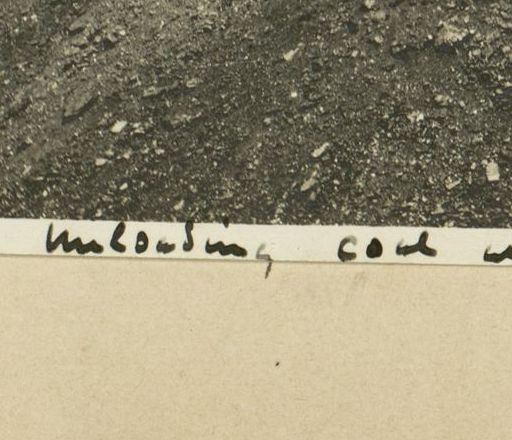 Unloading coal